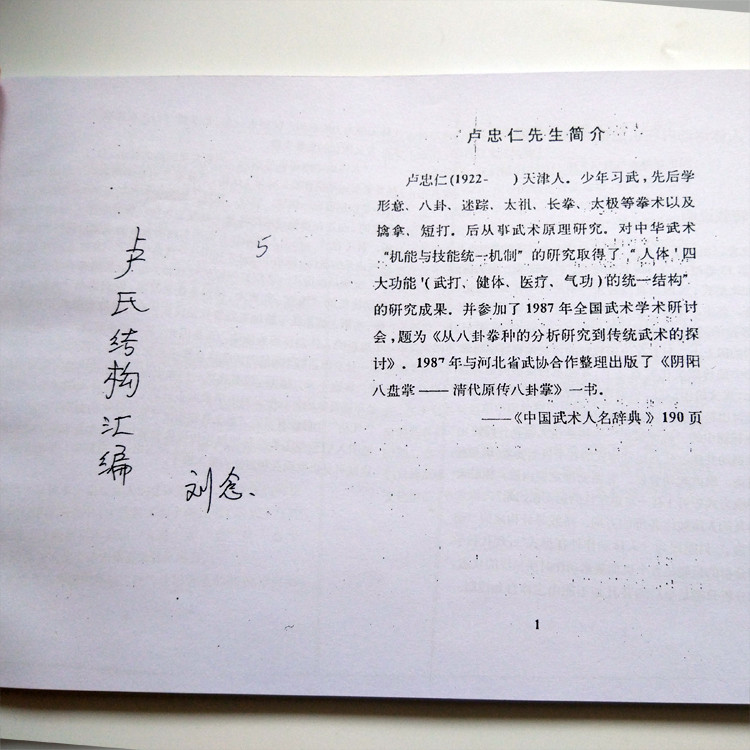 卢氏结构汇编
5
刘念.
卢忠仁先生简介
卢忠仁(1922- )天津人。少年习武,先后学
形意、八卦、迷踪、太祖、长拳、太极等拳术以及
擒拿、短打。后从事武术原理研究。对中华武术
“机能与技能统一机制”的研究取得了“人体'四
大功能'(武打、健体、医疗、气功)的统一结构”
的研究成果。并参加了1987年全国武术学术研讨
会,题为《从八卦拳种的分析研究到传统武术的探
讨》。1987年与河北省武协合作整理出版了《阴阳
八盘掌——清代原传八卦掌》一书。
——《中国武术人名辞典》190页
1